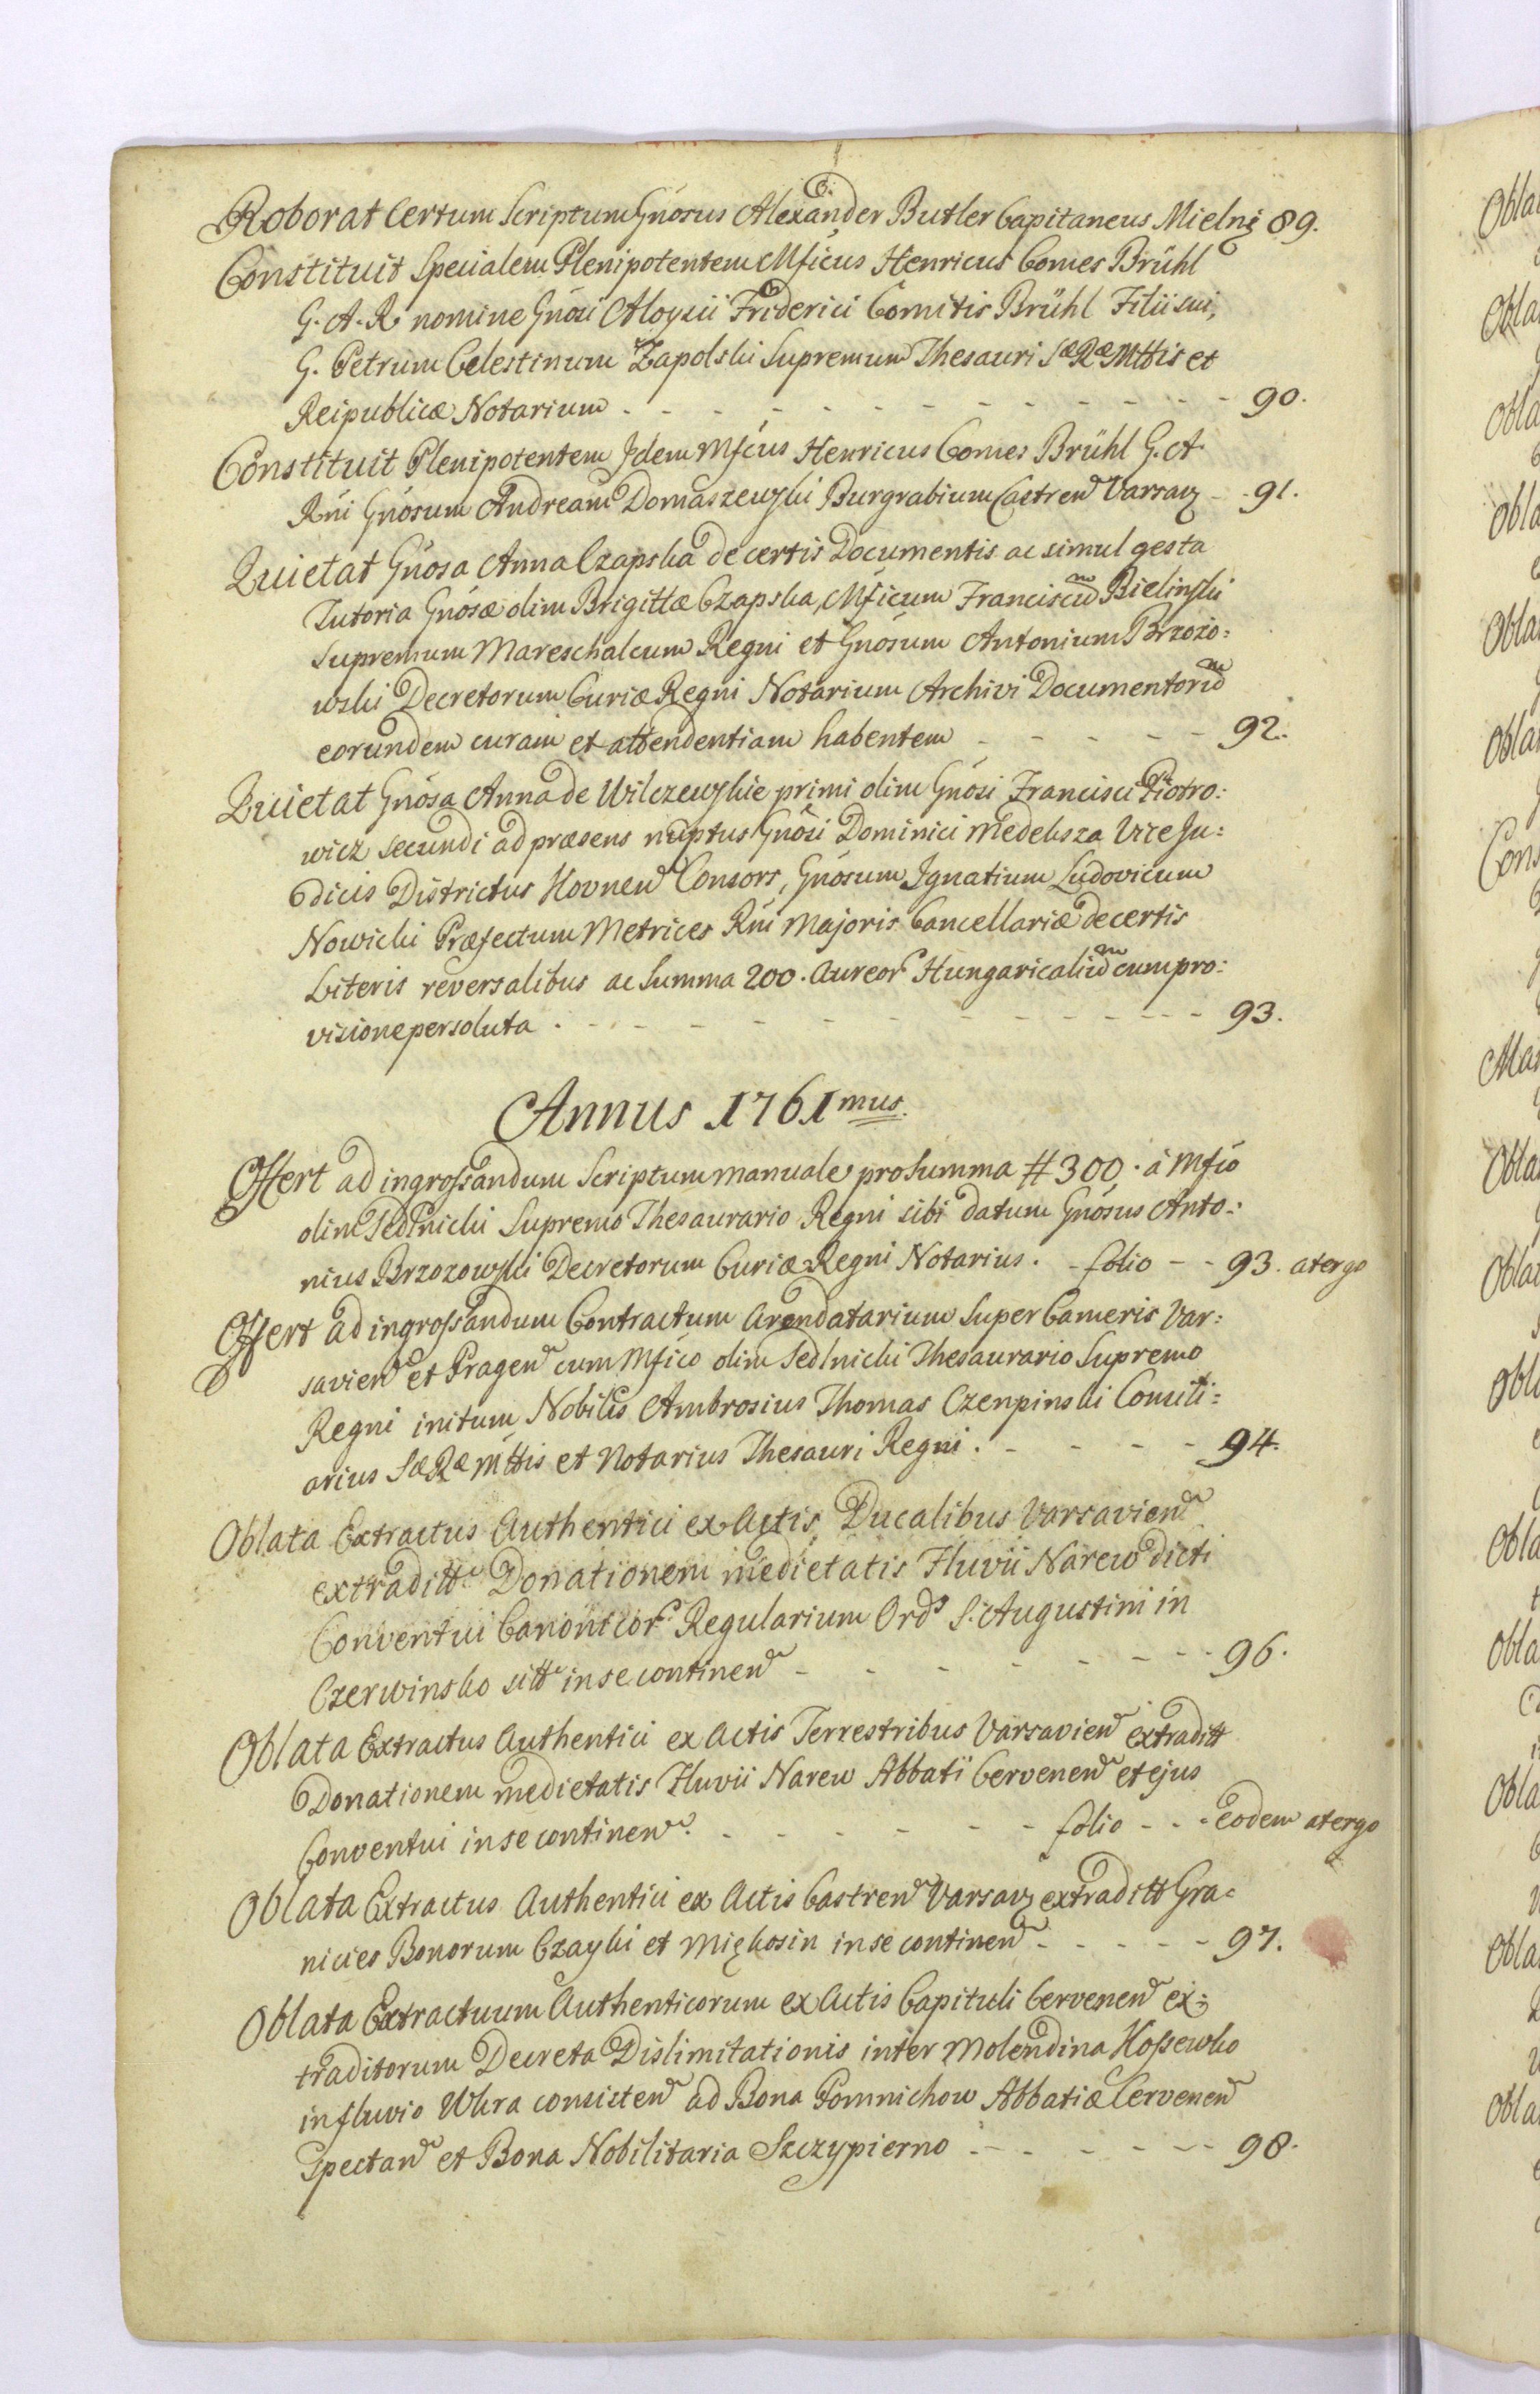 Roborat Certum Scriptum Gnosus Alexander Butler Capitaneus Mielni 89.
Constituit Specialem Plenipotentem Mficus Henricus Comes Brühl
G. A. R. nomine Gnosi Aloysii Friderici Comitis Brühl Filii sui,
G. Petrum Celestinum Zapolski Supremum Thesauri Sæ Ræ Mttis et
Reipublicæ Notarium - - - - - - - - - - - - 90.
Constituit Plenipotentem Idem Mficus Henricus Comes Brühl G. A.
Rni Gnosum Andream Domaszewski Burgrabium Castren Varsav - - 91.
Quietat Gnosa Anna Czapska de certis Documentis ac simul gesta
Tutoria Gnosæ olim Brigittæ Czapska, Mficum Franciscum Bielinski
Supremum Mareschalcum Regni et Gnosum Antonium Brzozo:
wski Decretorum Curiæ Regni Notarium Archivi Documentorum
eorundem curam et attendentiam habentem - - - - - 92.
Quietat Gnosa Anna de Wilczewskie primi olim Gnosi Francisci Piotro:
wicz secundi ad præsens nuptus Gnosi Dominici Medeksza Vice Ju:
dicis Districtus Kovnen Consors, Gnosum Ignatium Ludovicum
Nowicki Præfectum Metrices Rni Majoris Cancellariæ de certis
Literis reversalibus ac Summa 200. Aureor Hungaricalium cum pro:
visione persoluta . - - - - - - - - - - - 93.
Annus 1761mus.
Offert ad ingrossandum Scriptum manuale pro Summa # 300. à Mfico
olim Sedlnicki Supremo Thesaurario Regni sibi datum Gnosus Anto:
nius Brzozowski Decretorum Curiæ Regni Notarius. - folio - - 93. atergo
Offert ad ingrossandum Contractum Arendatarium Super Cameris Var:
savien et Pragen cum Mfico olim Sedlnicki Thesaurario Supremo
Regni initum Nobilis Ambrosius Thomas Czenpinski Consili:
arius Sæ Ræ Mttis et Notarius Thesauri Regni . - - - - 94.
Oblata Extractus Authentici ex Actis Ducalibus Varsavien
extraditt Donationem medietatis Fluvii Narew dicti
Conventui Canonicor Regularium Ord S. Augustini in
Czerwinsko sitt in se continen - - - - - - - - 96.
Oblata Extractus Authentici ex Actis Terrestribus Varsavien extraditt
Donationem medietatis Fluvii Narew Abbati Cervenen et ejus
Conventui in se continen. - - - - - - folio - - - eodem atergo
Oblata Extractus Authentici ex Actis Castren Varsav extraditt Gra:
nicies Bonorum Czayki et Miękosin in se continen - - - - - 97.
Oblata Extractuum Authenticorum ex Actis Capituli Cervenen ex:
traditorum Decreta Dislimitationis inter Molendina Kossewko
in fluvio Wkra consisten ad Bona Pomnichow Abbatiæ Cervenen
Spectan et Bona Nobilitaria Szczypierno - - - - - - - 98.